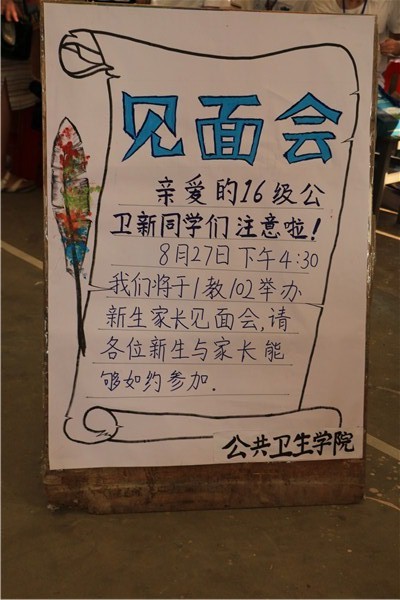 见面会
亲爱的16级公
卫新同学们注意啦!
8月27日下午4:30
我们将于1教102举办
新生家长见面会,请
各位新生与家长能
够如约参加.
公共卫生学院